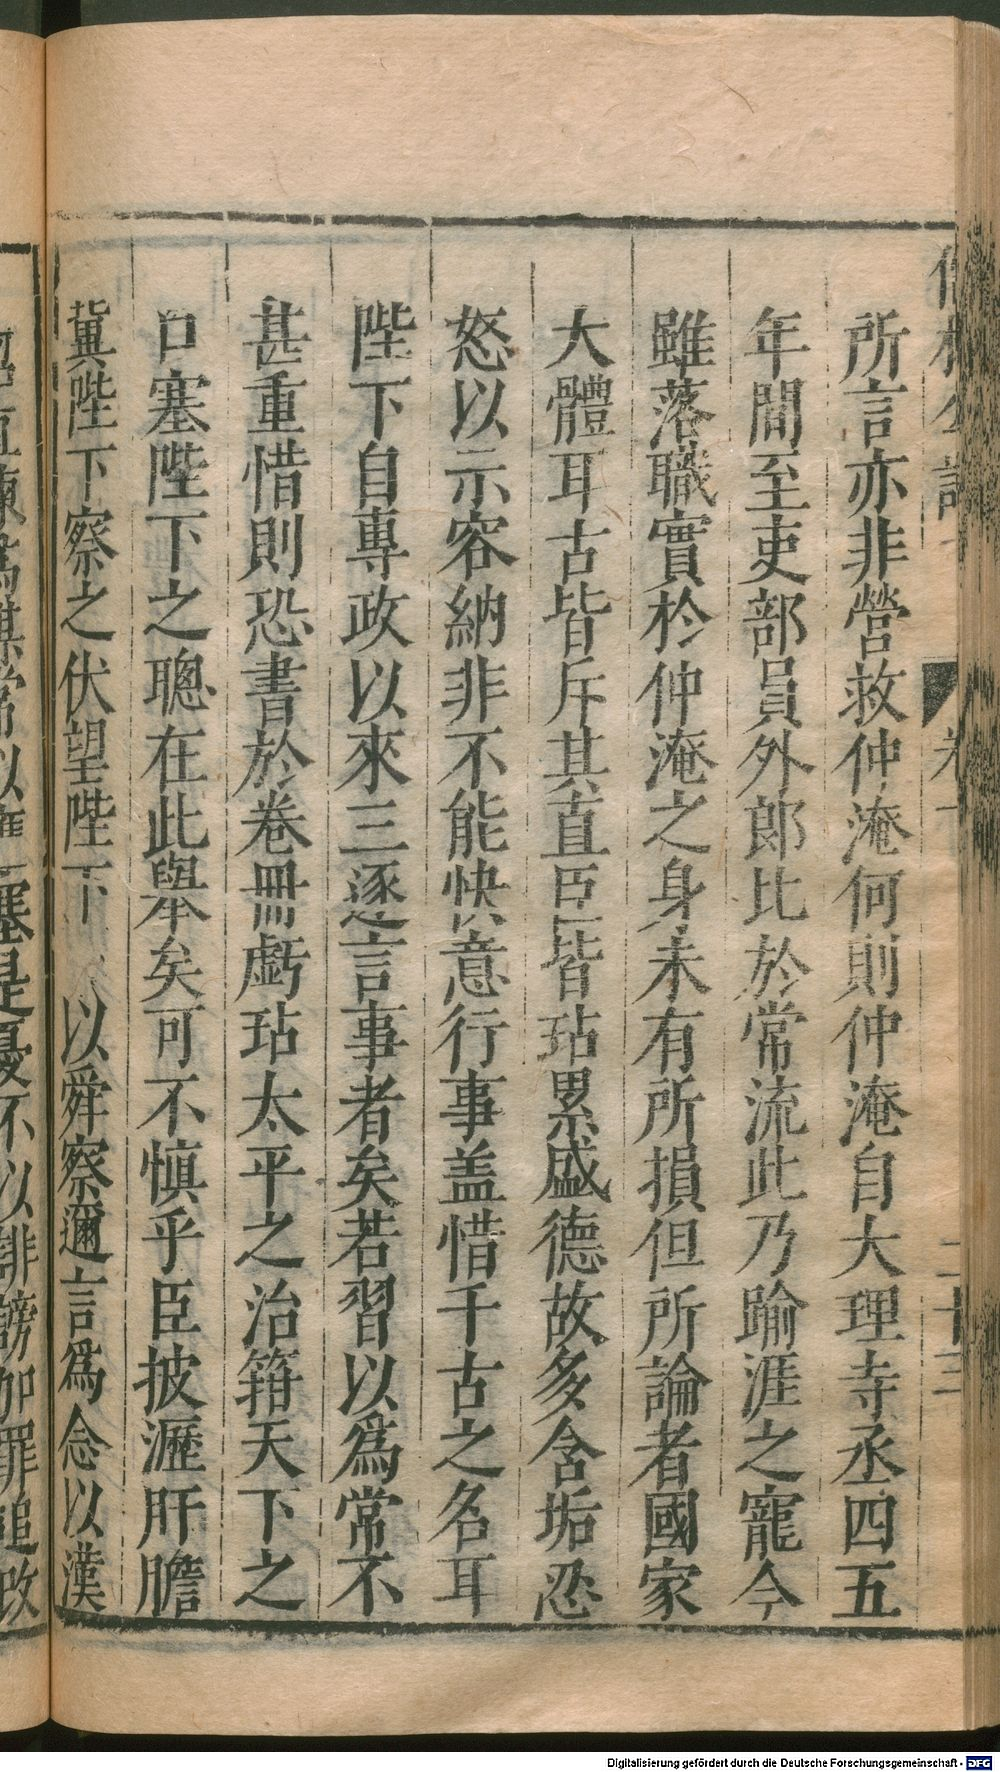 所言亦非營救仲淹何則仲淹自大理寺丞四五
年間至吏部員外郎比於常流此乃踰涯之寵今
雖落職實於仲淹之身未有所損但所論者國家
大體耳古皆斥其直臣皆玷累盛德故多含垢忍
怒以示容納非不能快意行事盖惜千古之名耳
陛下自專政以來三逐言事者矣若習以爲常不
甚重惜則恐書於卷冊虧玷太平之治籍天下之
口塞陛下之聰在此舉矣可不慎乎臣披瀝肝膽
冀陛下察之伏望陛下以舜察邇言爲念以漢
塞是憂不以誹謗加罪追改
Digitalisierung gefördert durch die Deutsche Forschungsgemeinschaft - DFG